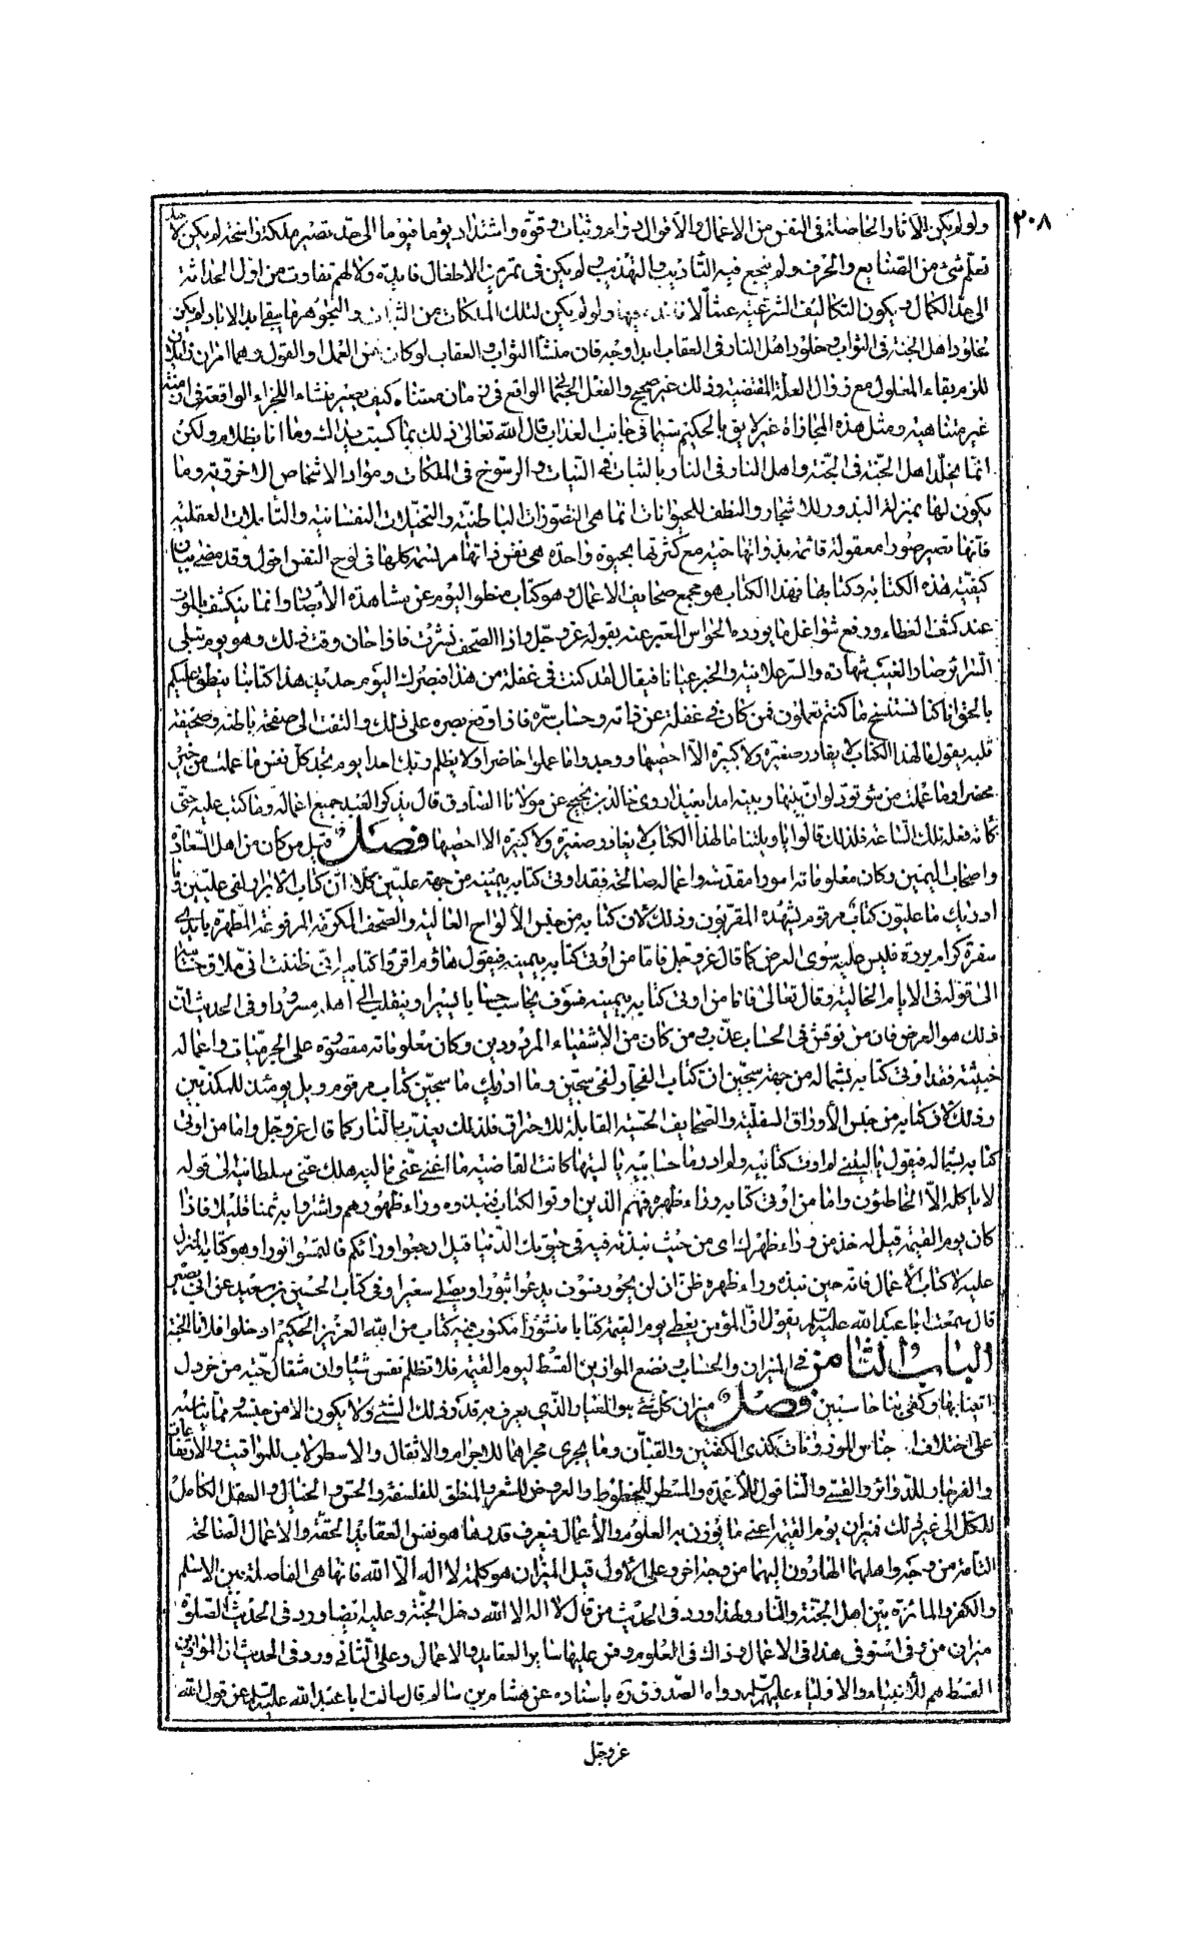 ٢٠٨
ولو لم يكن الآثار الحاصلة فى النفس من الاعمال والأقوال دوام وثبات وقوة واشتداد يوما فيوما الى حد تصير ملكة راسخة لم يكن لأحد
تعلم شئ من الصنايع والحرف ولم ينجع فيه التأديب والتهذيب ولم يكن فى تمرين الاطفال فايدة ولا لهم تفاوت من اول الحداثة
الى حد الكمال ويكون التكاليف الشرعية عبثاً لا فائدة فيها ولو لم يكن لتلك الملكات من الثبات والتجوهر ما يبقى ابد الاباد لم يكن
لخلود اهل الجنة فى الثواب وخلود اهل النار فى العقاب ابدا وجه فان منشأ الثواب والعقاب لو كان نفس العمل او القول وهما امران زايلان
للزم بقاء المعلول مع زوال العلة المقتضية وذلك غير صحيح والفعل الجسمانى الواقع فى زمان متناه كيف يصير منشاء للجزاء الواقعة فى ازمنة
غير متناهية ومثل هذه المجازاة غير لايق بالحكيم سيما فى جانب العذاب قال الله تعالى ذلك بما كسبت يداك وما انا بظلام ولكن
انما يخلد اهل الجنة فى الجنة واهل النار فى النار بالثبات فى النيات والرسوخ فى الملكات ومواد الاشخاص الاخروية وما
يكون لها بمنزلة البذور للاشجار والنطف للحيوانات انما هى التصورات الباطنية والتخيلات النفسانية والتأملات العقلية
فانها تصير صورا معقولة قائمة بذواتها حية مع كثرتها بحيوة واحدة هى نفس ذاتها مرتسمة كلها فى لوح النفس اقول وقد مضى بيان
كيفية هذه الكتابة وكتابها فهذا الكتاب هو مجمع صحايف الاعمال وهو كتاب منطو اليوم عن مشاهدة الأبصار وانما ينكشف بالموت
عند كشف الغطاء ورفع شواغل ما يورده الحواس المعبر عنه بقوله عز وجل واذا الصحف نشرت فاذا حان وقت ذلك وهو يوم تبلى
السرائر وصار الغيب شهادة والسر علانية والخبر عيانا فيقال لقد كنت فى غفلة من هذا فبصرك اليوم حديد هذا كتابنا ينطق عليكم
بالحق انا كنا نستنسخ ما كنتم تعملون فمن كان فى غفلة عن ذاته وحساب سره فاذا وقع بصره على ذلك والتفت الى صفحة باطنه وصحيفة
قلبه يقول ما لهذا الكتاب لا يغادر صغيرة ولا كبيرة الا احصيها ووجدوا ما عملوا حاضرا ولا يظلم ربك احدا يوم تجد كل نفس ما عملت من خير
محضرا وما عملت من سوء تود لو ان بينها وبينه امدا بعيدا روى خالد بن نجيح عن مولانا الصادق قال يذكر العبد جميع اعماله وما كتب عليه حتى
كأنه فعله تلك الساعة فلذلك قالوا يا ويلتنا ما لهذا الكتاب لا يغادر صغيرة ولا كبيرة الا احصيها فصل قيل من كان من اهل السعادة
واصحاب اليمين وكان معلوماته امورا مقدسة واعماله صالحة فقد اوتى كتابه بيمينه من جهة عليين كلا ان كتاب الابرار لفى عليين وما
ادريك ما عليون كتاب مرقوم يشهده المقربون وذلك لان كتابه من جنس الألواح العالية والصحف المكرمة المرفوعة المطهرة بايدى
سفرة كرام بررة فليس عليه سوى العرض كما قال عز وجل فاما من اوتى كتابه بيمينه فيقول هاؤم اقرؤا كتابيه انى ظننت انى ملاق حسابيه
الى قوله فى الايام الخالية وقال تعالى فاما من اوتى كتابه بيمينه فسوف يحاسب حسابا يسيرا وينقلب الى اهله مسرورا وفى الحديث ان
ذلك هو العرض فان من نوقش فى الحساب عذب ومن كان من الاشقياء المردودين وكان معلوماته مقصورة على الجرميات واعماله
خبيثة فقد اوتى كتابه بشماله من جهة سجين ان كتاب الفجار لفى سجين وما ادريك ما سجين كتاب مرقوم ويل يومئذ للمكذبين
وذلك لان كتابه من جنس الأوراق السفلية والصحايف الحسية القابلة للاحتراق فلذلك يعذب بالنار كما قال عز وجل واما من اوتى
كتابه بشماله فيقول يا ليتنى لم اوت كتابيه ولم ادر ما حسابيه يا ليتها كانت القاضية ما اغنى عنى ماليه هلك عنى سلطانيه الى قوله
لا ياكله الا الخاطئون واما من اوتى كتابه وراء ظهره فهم الذين اوتوا الكتاب فنبذوه وراء ظهورهم واشتروا به ثمنا قليلا فاذا
كان يوم القيمة قيل له خذ من وراء ظهرك اى من حيث نبذته فيه فى حيوتك الدنيا قيل ارجعوا ورائكم فالتمسوا نورا وهو كتابه المنزل
عليه لا كتاب الاعمال فانه حين نبذه وراء ظهره ظن ان لن يحور فسوف يدعوا ثبورا ويصلى سعيرا وفى كتاب الحسين بن سعيد عن ابى بصير
قال سمعت ابا عبد الله عليه السلام يقول ان المؤمن يعطى يوم القيمة كتابا منشورا مكتوب فيه كتاب من الله العزيز الحكيم ادخلوا فلانا الجنة
الباب الثامن فى الميزان والحساب ونضع الموازين القسط ليوم القيمة فلا تظلم نفس شيئا وان مثقال حبة من خردل
اتينا بها وكفى بنا حاسبين فصل ميزان كل شئ هو المعيار الذى يعرف به قدر ذلك الشئ ولا يكون الا من جنسه فما يناسبه
على اختلاف اجناس الموزونات كذى الكفتين والقبان وما يجرى مجراهما للاجرام والاثقال والاسطرلاب للمواقيت والارتفاعات
والفرجار للدوائر والقسى والشاقول للاعمدة والمسطر للخطوط والعروض للشعر والمنطق للفلسفة والحس والخيال والعقل الكامل
للكل الى غير ذلك فميزان يوم القيمة اعنى ما يوزن به العلوم والأعمال فيعرف قدرها هو نفس العقايد الحقة والأعمال الصالحة
التامة من وجه واهلهما الهادون اليهما من وجه اخر وعلى الاول قيل الميزان هو كلمة لا اله الا الله فانها هى الفاصلة بين الاسلام
والكفر والمائزة بين اهل الجنة والنار ولهذا ورد فى الحديث من قال لا اله الا الله دخل الجنة وعليه ايضا ورد فى الحديث الصلوة
ميزان من وفى استوفى هذا فى الاعمال وذاك فى العلوم وقس عليها سائر العقايد والاعمال وعلى الثانى ورد فى الحديث ان الموازين
القسط هم الأنبياء والاوصياء عليهم السلام رواه الصدوق ره باسناده عن هشام بن سالم قال سالت ابا عبد الله عليه السلام عن قول الله
عز وجل